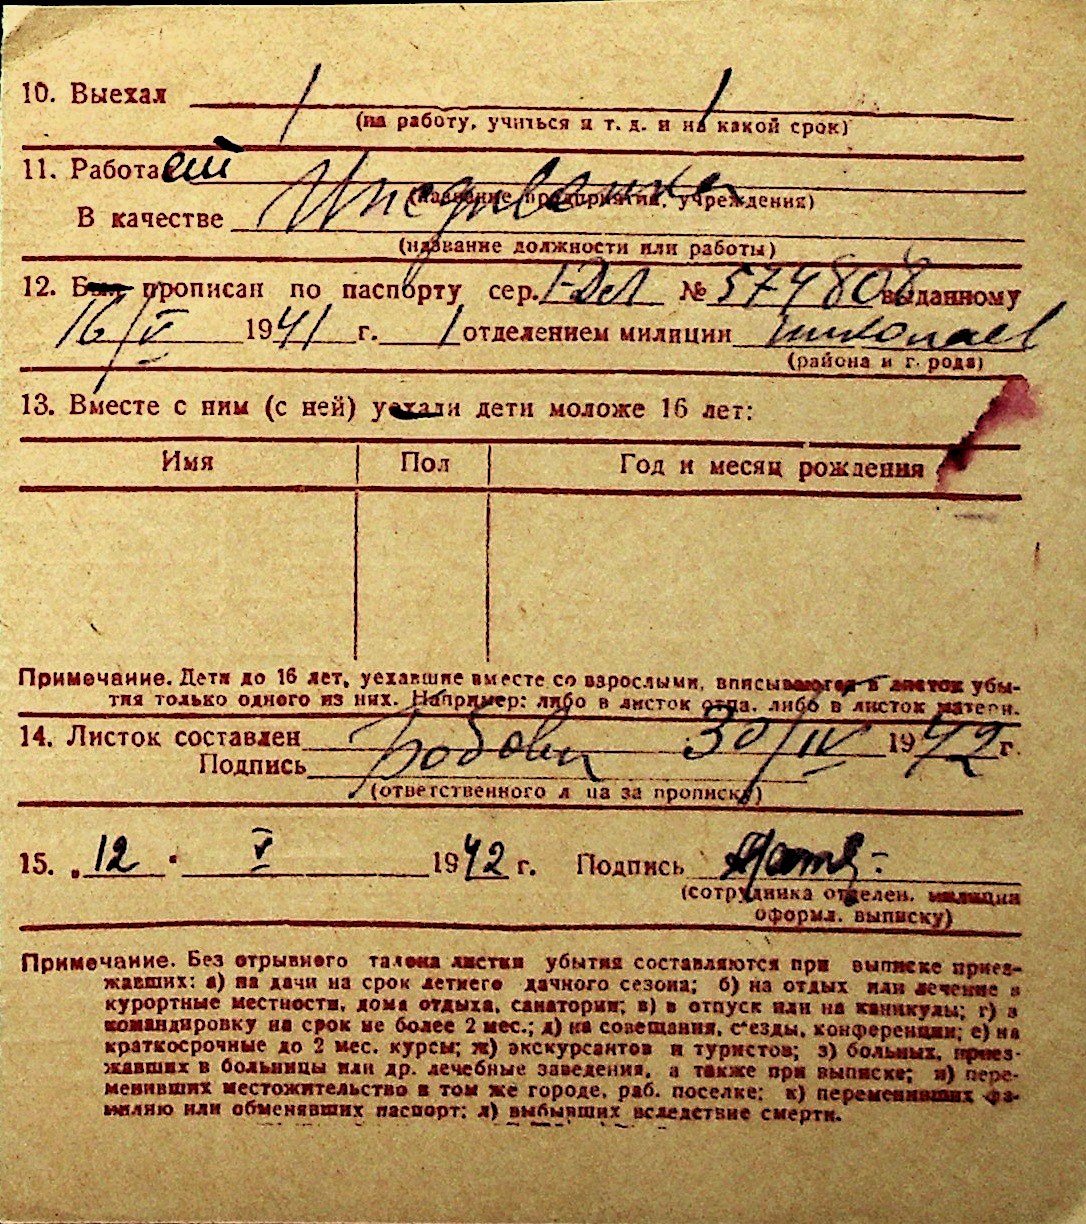 10. Выехал
(на работу, учиться и т. д. и на какой срок)
11. Работает
(название предприятия, учреждения)
В качестве Иждивенка
(название должности или работы)
12. Был прописан по паспорту сер. № 574808 выданному
16/V 1941 г. 1 отделением милиции Николаев
(района и города)
13. Вместе с ним (с ней) уехали дети моложе 16 лет:
Имя Пол Год и месяц рождения
Примечание. Дети до 16 лет, уехавшие вместе со взрослыми, вписываются в листок убы-
тия только одного из них. Например: либо в листок отца, либо в листок матери.
14. Листок составлен 30/IV 1942 г.
Подпись
(ответственного лица за прописку)
15. „12" V 1942 г. Подпись
(сотрудника отделен. милиции
оформл. выписку)
Примечание. Без отрывного талона листки убытия составляются при выписке приез-
жавших: а) на дачи на срок летнего дачного сезона; б) на отдых или лечение в
курортные местности, дома отдыха, санатории; в) в отпуск или на каникулы; г) в
командировку на срок не более 2 мес.; д) на совещания, съезды, конференции; е) на
краткосрочные до 2 мес. курсы; ж) экскурсантов и туристов; з) больных, приез-
жавших в больницы или др. лечебные заведения, а также при выписке; и) пере-
менивших местожительство в том же городе, раб. поселке; к) переменивших фа-
милию или обменявших паспорт; л) выбывших вследствие смерти.